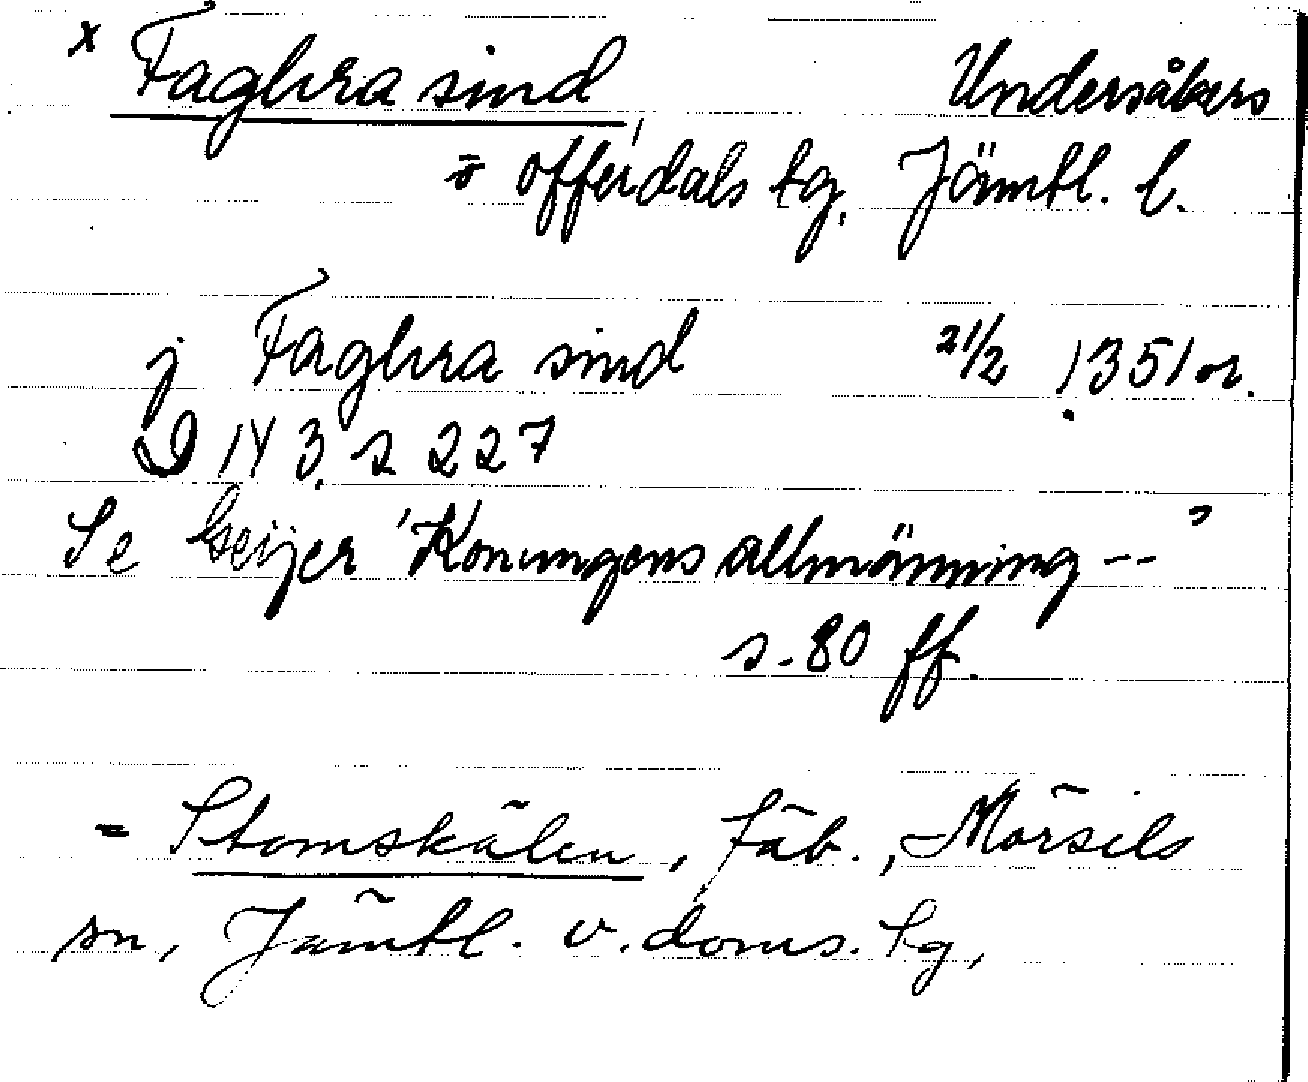 x Faghra sind Undersåkers
o offerdals tg. Jämtl. l.
j Faghra sind 21/2 1351 or.
D 143. s 227
Se Geijer "Konungens allmänning --"
s. 80 ff.
= Stomskälen, fäb., Mörsils
sn, Jämtl. v. doms. tg,